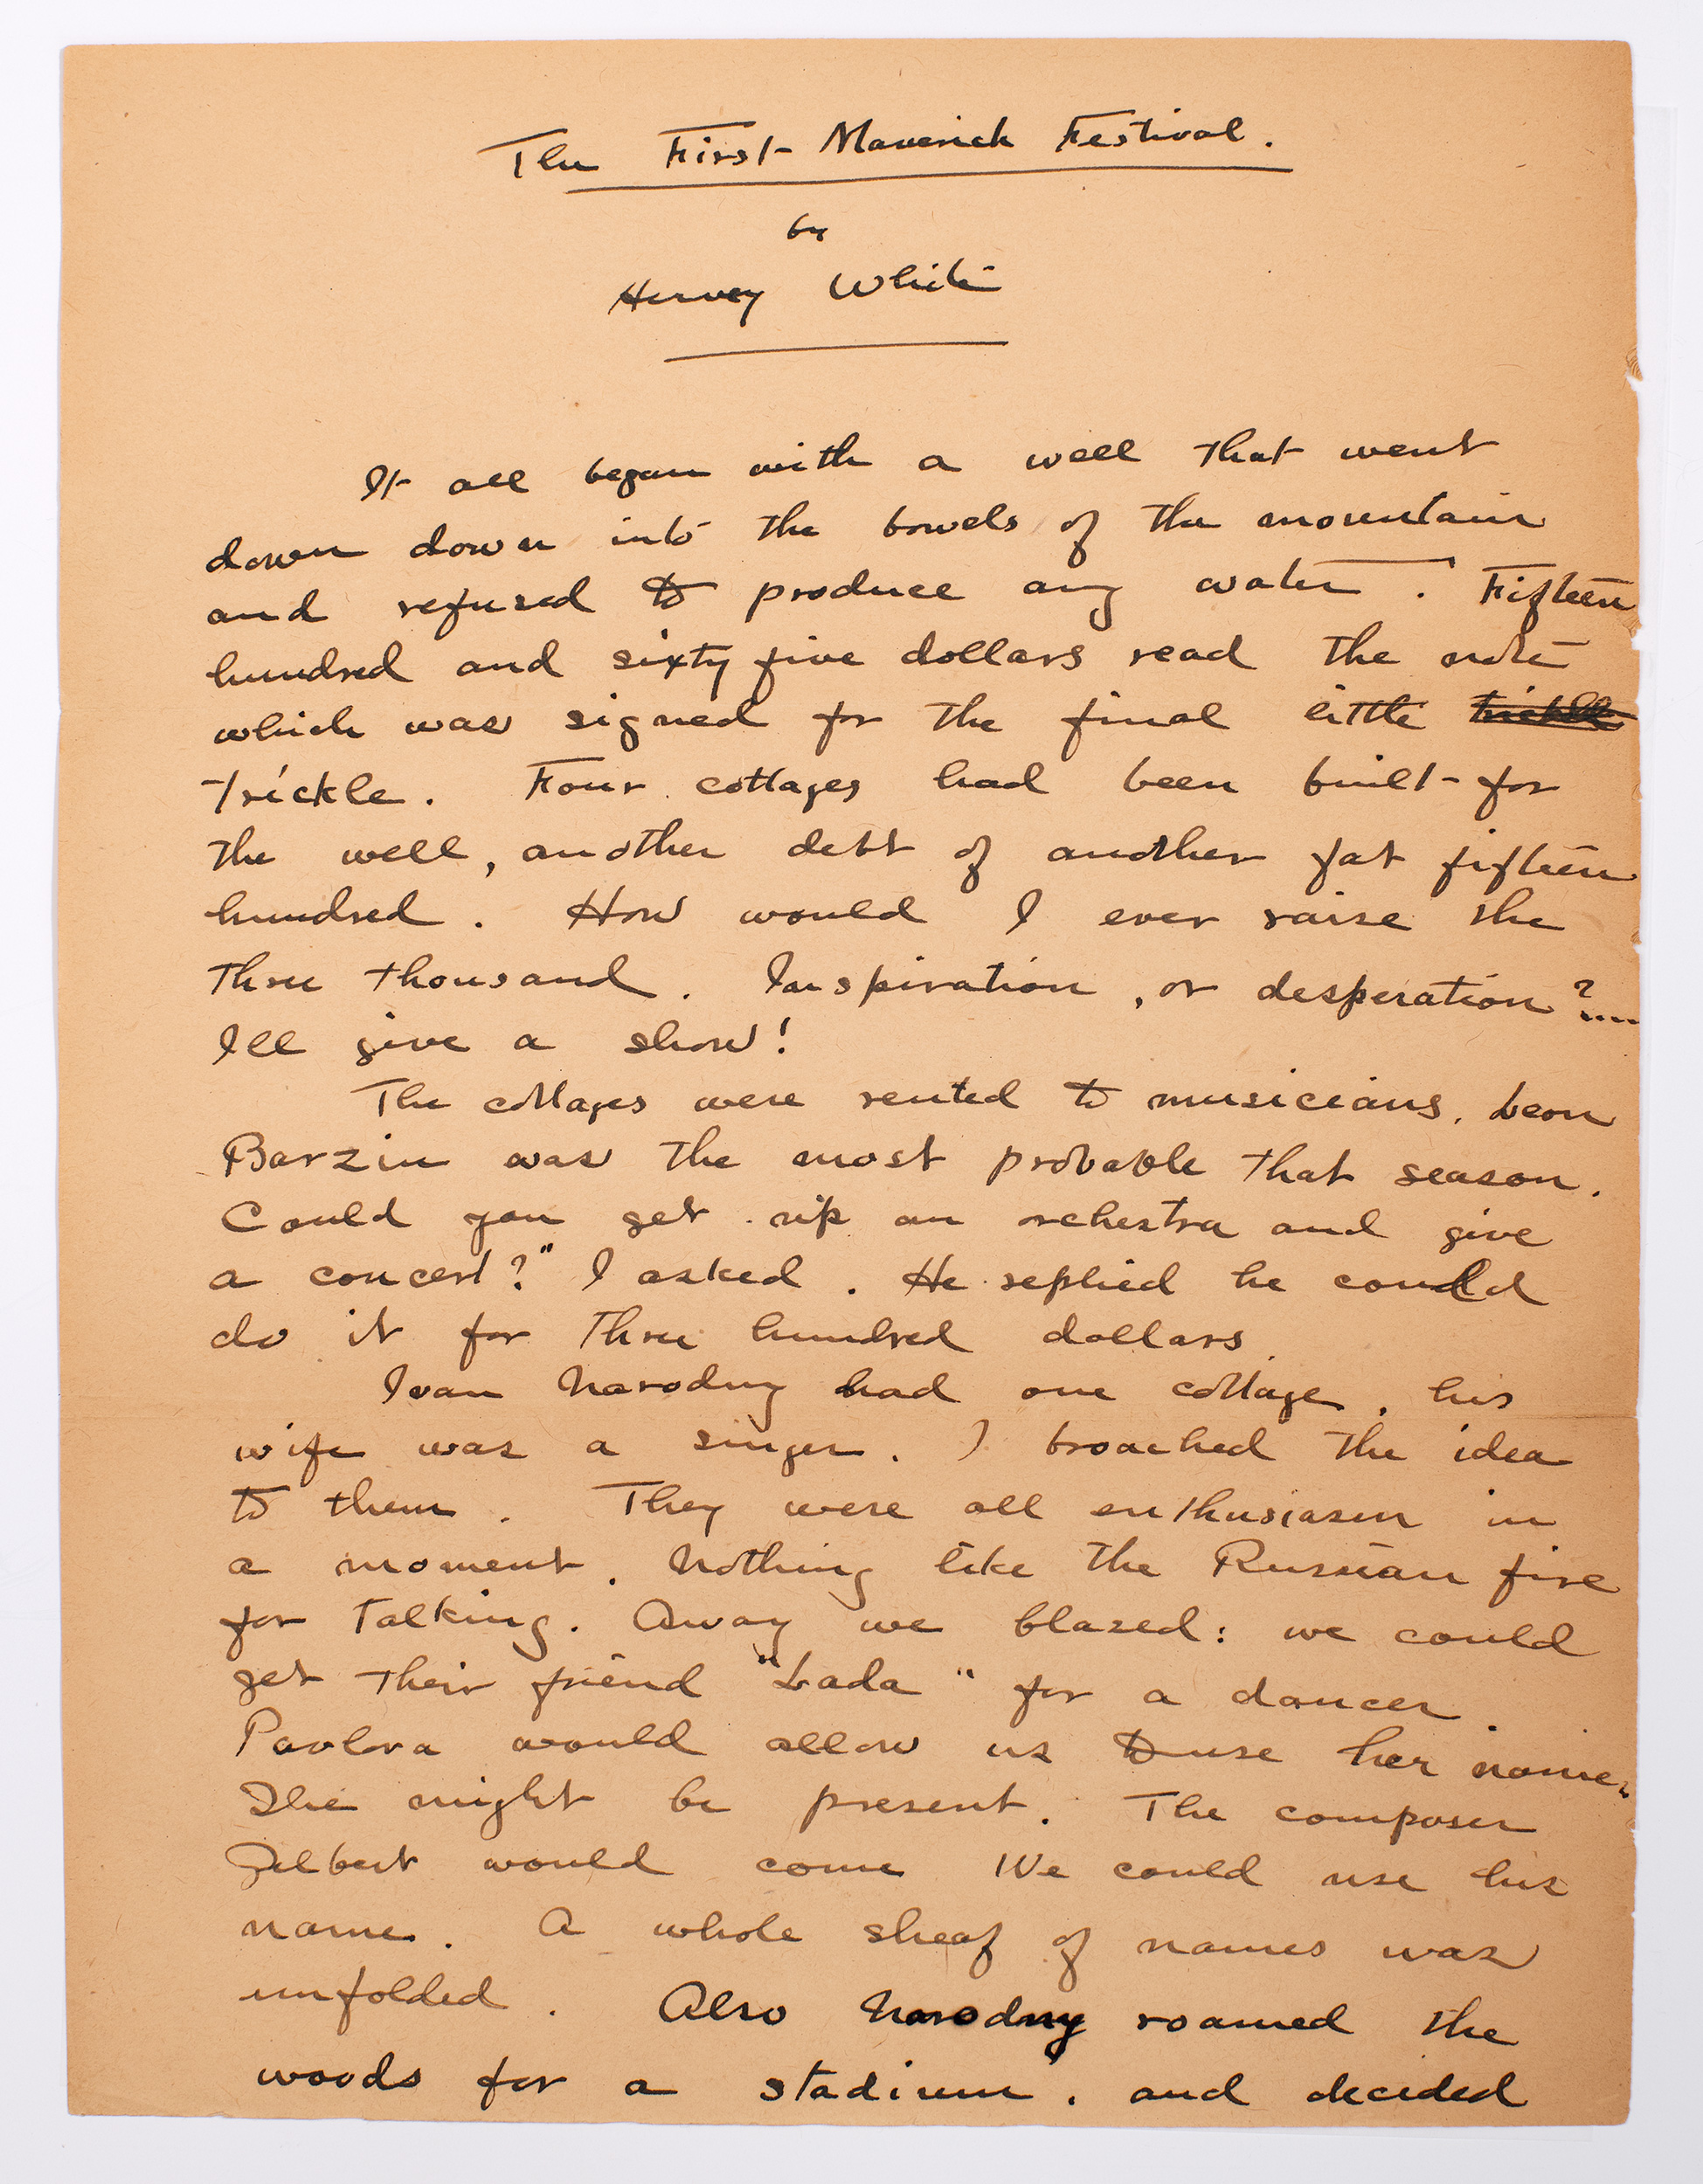 The First Maverick Festival.
by
Hervey White
It all began with a well that went
down down into the bowels of the mountain
and refused to produce any water. Fifteen
hundred and sixty five dollars read the note
which was signed for the final little trickle
trickle. Four cottages had been built for
the well, another debt of another fat fifteen
hundred. How would I ever raise the
three thousand. Inspiration, or desperation?....
I'll give a show!
The cottages were rented to musicians. Leon
Barzin was the most probable that season.
Could you get up an orchestra and give
a concert?" I asked. He replied he could
do it for three hundred dollars.
Ivan Narodny had one cottage, his
wife was a singer. I broached the idea
to them. They were all enthusiasm in
a moment. Nothing like the Russian fire
for talking. Away we blazed: we could
get their friend "Lada" for a dancer.
Pavlova would allow us to use her name.
She might be present. The composer
Gilbert would come We could use his
name. A whole sheaf of names was
unfolded. Also Narodny roamed the
woods for a stadium. and decided